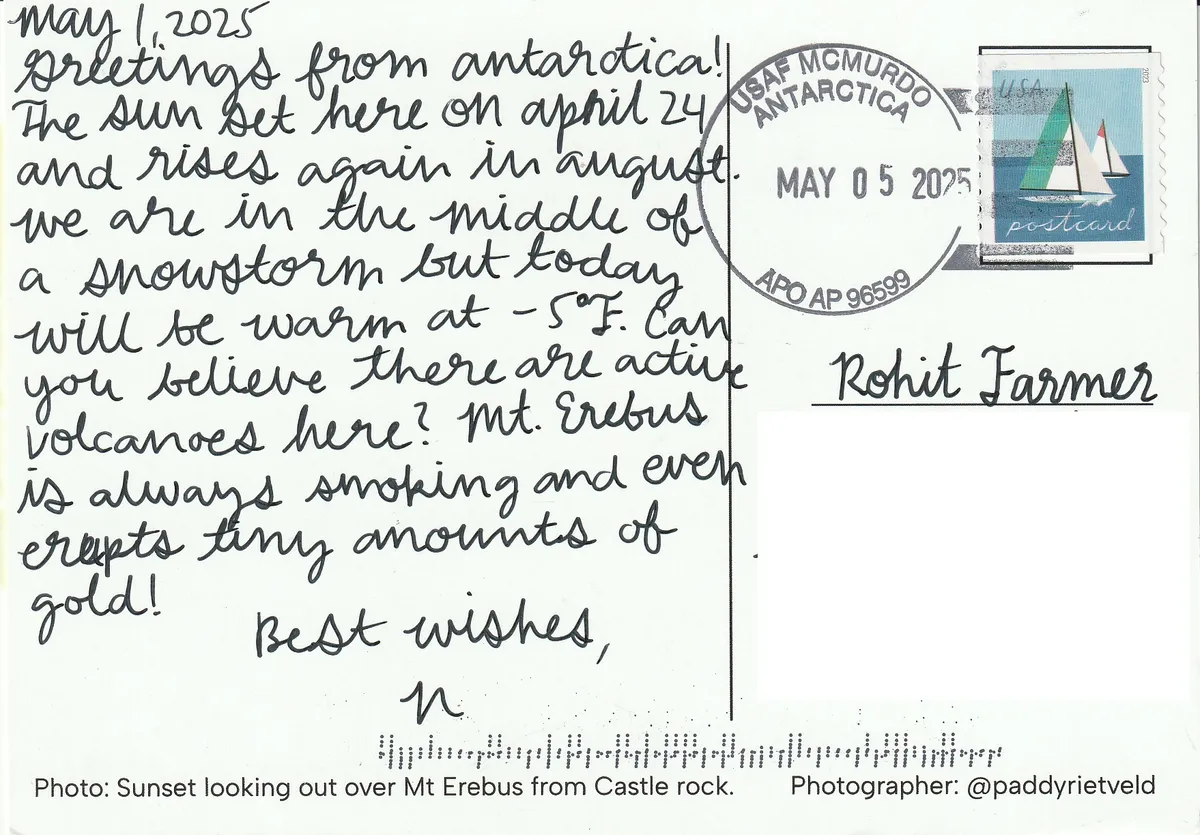 may 1, 2025
Greetings from antarctica!
The sun set here on april 24
and rises again in august.
we are in the middle of
a snowstorm but today
will be warm at -5°F. Can
you believe there are active
volcanoes here? Mt. Erebus
is always smoking and even
erupts tiny amounts of
gold!
Best wishes,
n
USAF MCMURDO
ANTARCTICA
MAY 05 2025
APO AP 96599
USA
2023
postcard
Rohit Farmer
Photo: Sunset looking out over Mt Erebus from Castle rock.
Photographer: @paddyrietveld